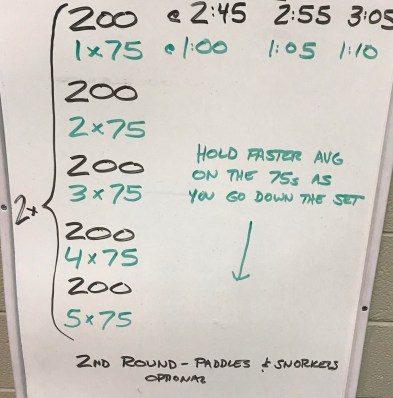 200 @ 2:45 2:55 3:05
1x75 @ 1:00 1:05 1:10
200
2x75
200
3x75
2x
200
4x75
200
5x75
HOLD FASTER AVG
ON THE 75s AS
YOU GO DOWN THE SET
2ND ROUND - PADDLES & SNORKELS
OPTIONAL